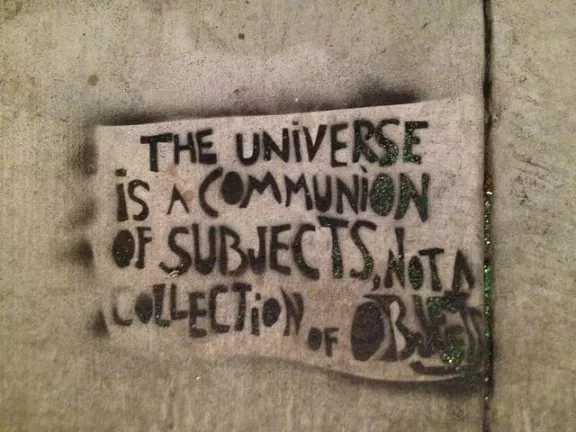 THE UNiVERSE
iS A COMMUNiON
OF SUBJECTS, NOT A
COLLECTiON OF OBJECTS